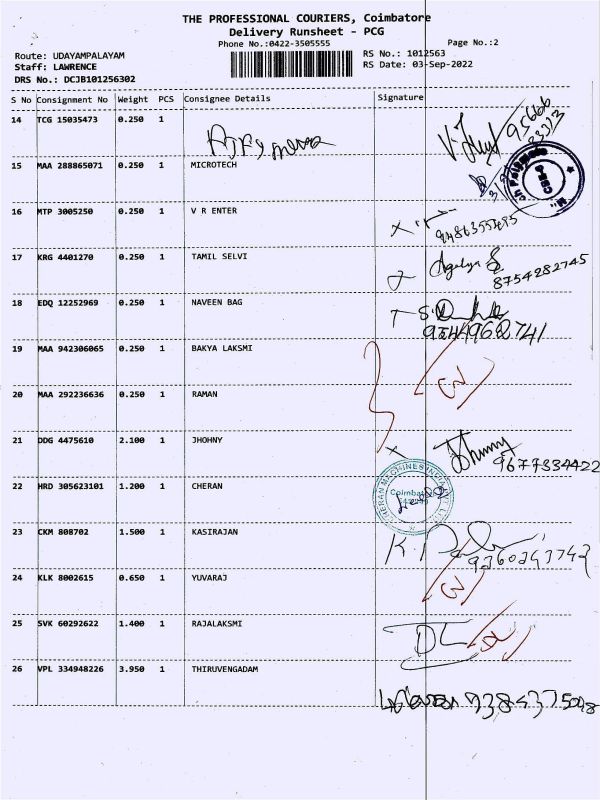 THE PROFESSIONAL COURIERS, Coimbatore
Delivery Runsheet - PCG
Phone No.:0422-3505555
Page No.:2
Route: UDAYAMPALAYAM
RS No.: 1012563
Staff: LAWRENCE
RS Date: 03-Sep-2022
DRS No.: DCJB101256302
S No Consignment No Weight PCS Consignee Details Signature
14 TCG 15035473 0.250 1
15 MAA 288865071 0.250 1 MICROTECH
16 MTP 3005250 0.250 1 V R ENTER
17 KRG 4401270 0.250 1 TAMIL SELVI
8754282745
18 EDQ 12252969 0.250 1 NAVEEN BAG
19 MAA 942306065 0.250 1 BAKYA LAKSMI
20 MAA 292236636 0.250 1 RAMAN
21 DDG 4475610 2.100 1 JHOHNY
Jhunny
9677334422
22 HRD 305623101 1.200 1 CHERAN
CHERAN MACHINES INDIA
23 CKM 808702 1.500 1 KASIRAJAN
24 KLK 8002615 0.650 1 YUVARAJ
25 SVK 60292622 1.400 1 RAJALAKSMI
26 VPL 334948226 3.950 1 THIRUVENGADAM